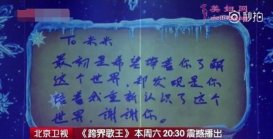 美拍网
秒拍
To 米米
最初是希望带着你了解
这个世界,却发现是你
陪着我重新认识了这个
世界,谢谢你。
北京卫视
《跨界歌王》本周六 20:30 震撼播出